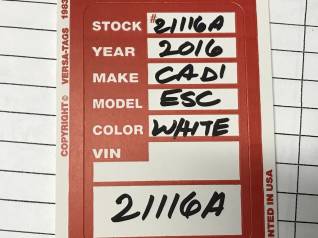 STOCK #21116A
YEAR 2016
MAKE CADI
MODEL ESC
COLOR WHITE
VIN
21116A
COPYRIGHT © VERSA-TAGS 1983
NTED IN USA